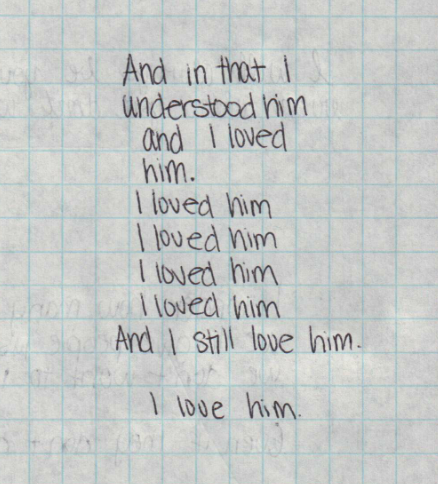 And in that I
understood him
and I loved
him.
I loved him
I loved him
I loved him
I loved him
And I still love him.
I love him.